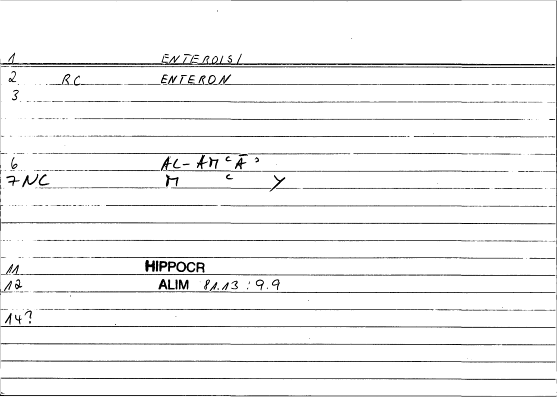 1 ENTEROISI
2 RC ENTERON
3
6 AL-AMʿĀʾ
7 NC M ʿ Y
11 HIPPOCR
12 ALIM 81.13 : 9.9
14?